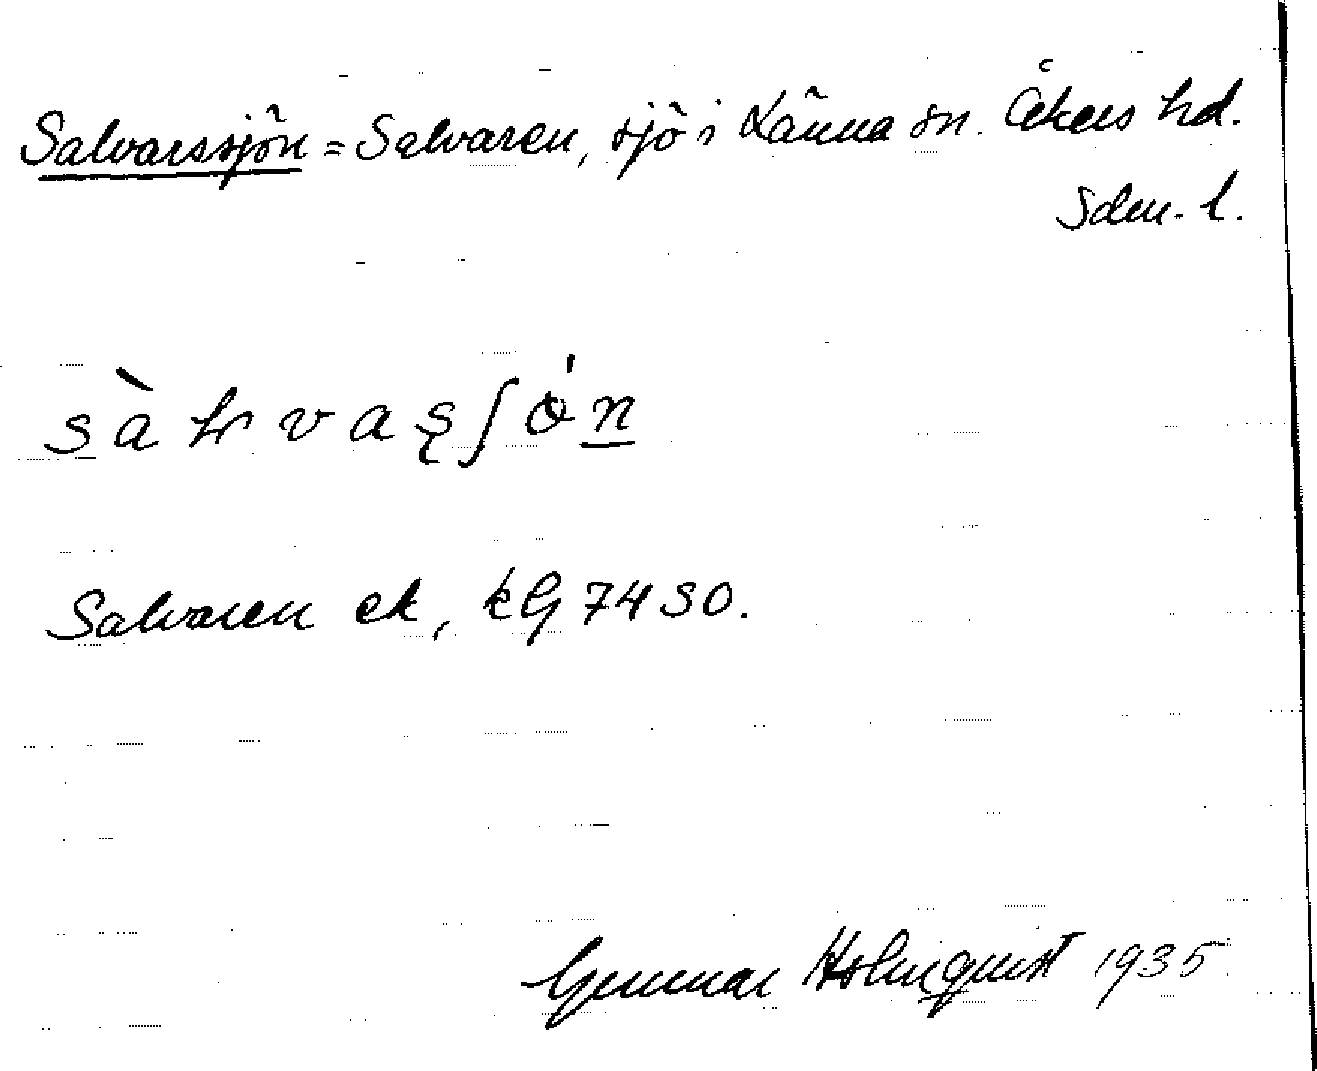 Salvarssjön = Salvaren, sjö i Länna sn. Åkers hd.
Sdm. l.
sàƚvaʂʃǿn
Salvaren ek, kG 7430.
Gunnar Holmquist 1935